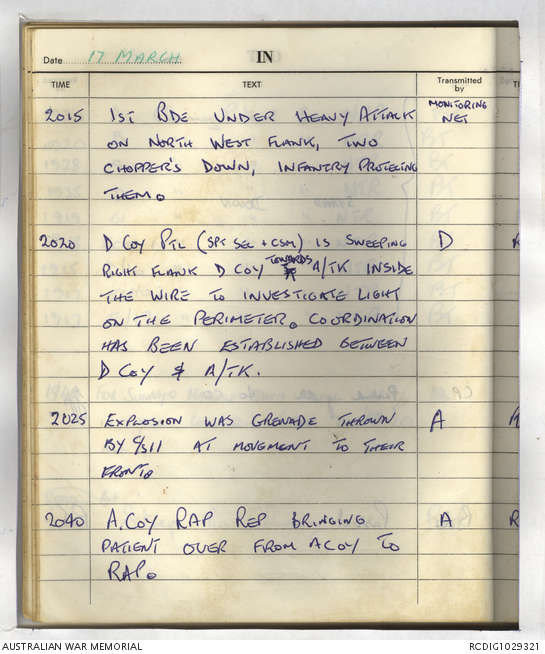 Date 17 MARCH IN
TIME TEXT Transmitted by TI
2015 1ST BDE UNDER HEAVY ATTACK MONITORING NET
ON NORTH WEST FLANK, TWO
CHOPPER'S DOWN, INFANTRY PROTECTING
THEM.
2020 D COY PTL (SPT SEC + CSM) IS SWEEPING D
RIGHT FLANK D COY TOWARDS A/TK INSIDE
THE WIRE TO INVESTIGATE LIGHT
ON THE PERIMETER. COORDINATION
HAS BEEN ESTABLISHED BETWEEN
D COY & A/TK.
2025 EXPLOSION WAS GRENADE THROWN A
BY C/S 11 AT MOVEMENT TO THEIR
FRONT.
2040 A.COY RAP REP BRINGING A R
PATIENT OVER FROM A COY TO
RAP.
AUSTRALIAN WAR MEMORIAL RCDIG1029321